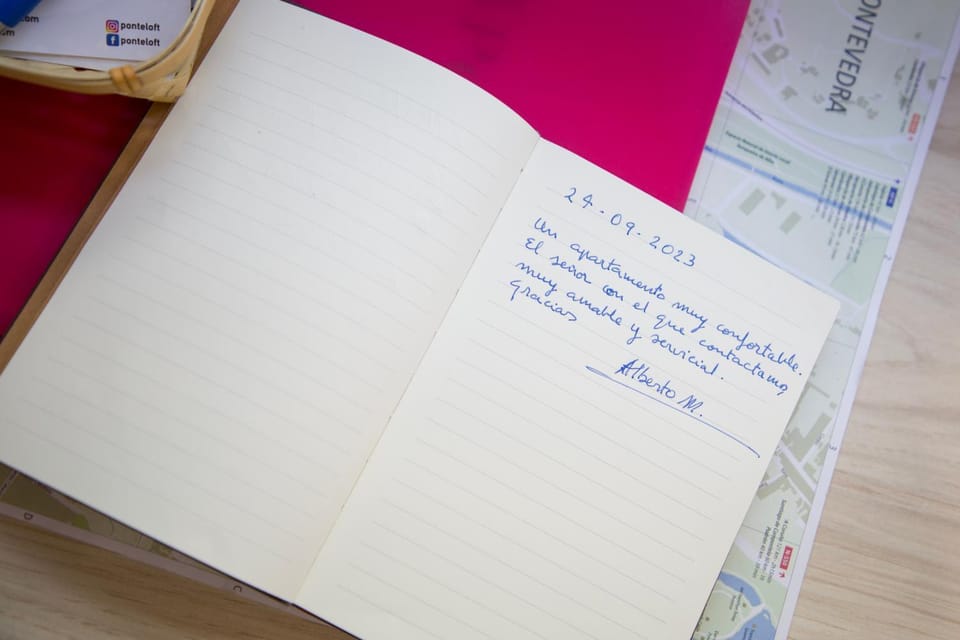 .com
ponteloft
ponteloft
PONTEVEDRA
24-09-2023
Un apartamento muy confortable.
El señor con el que contactamos,
muy amable y servicial.
Gracias
Alberto M.
N-550
C
D